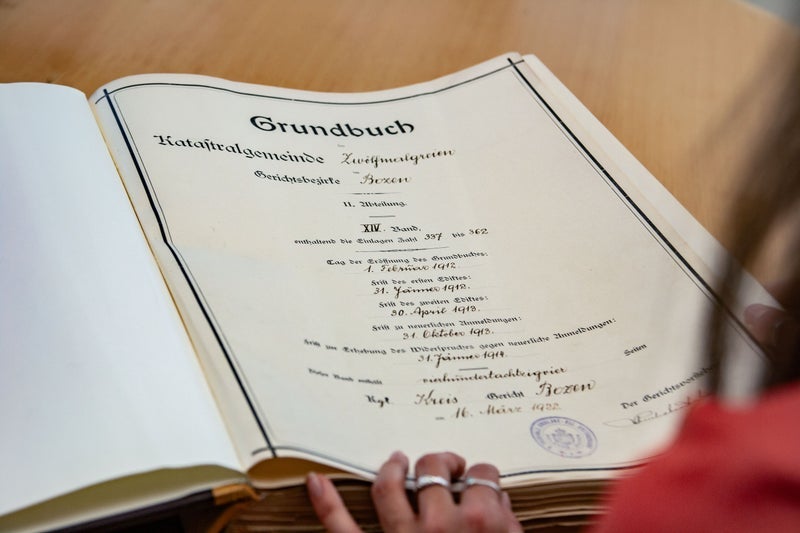 Grundbuch
der
Katastralgemeinde Zwölfmalgreien
Gerichtsbezirke Bozen
II. Abteilung.
XIV. Band,
enthaltend die Einlagen Zahl 337 bis 362
Tag der Eröffnung des Grundbuches:
1. Februar 1912.
Frist des ersten Ediktes:
31. Jänner 1913.
Frist des zweiten Ediktes:
30. April 1913.
Frist zu neuerlichen Anmeldungen:
31. Oktober 1913.
Frist zur Erhebung des Widerspruches gegen neuerliche Anmeldungen:
31. Jänner 1914.
Dieser Band enthält vierhundertachtzigvier Seiten
Kgl. Kreis Gericht Bozen
am 16. März 1922
Der Gerichtsvorsteher